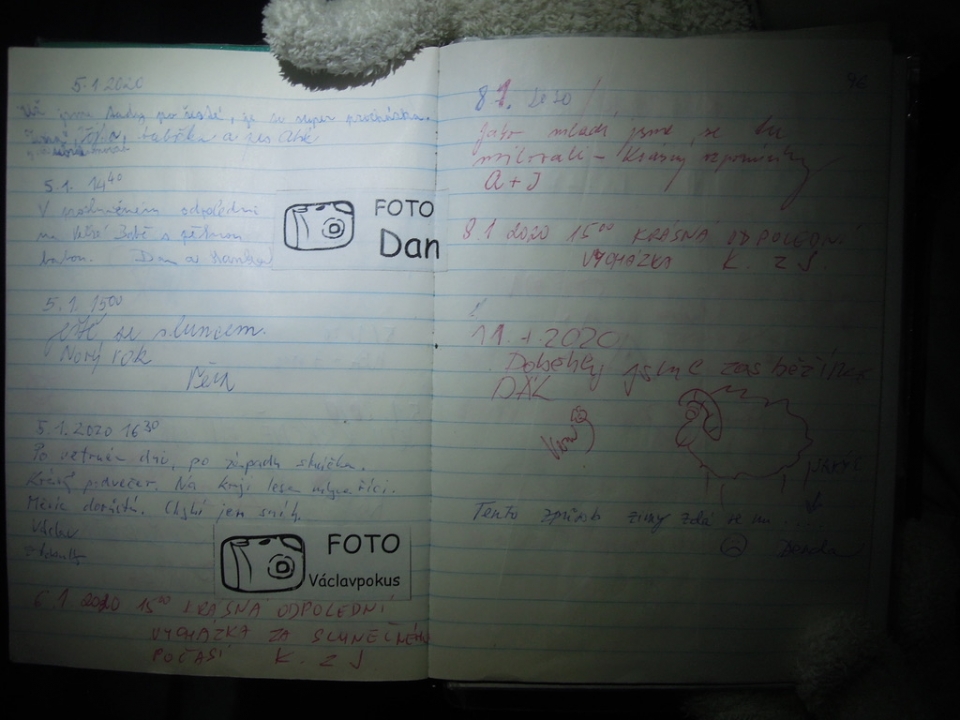 5.1.2020
jsme tady po , je to super procházka.
babička a
5.1. 14⁴⁰
V odpoledni
na Velké Babě s pěknou
Dan a
FOTO
Dan
5.1. 15⁰⁰
se sluncem.
Nový rok
5.1.2020 16³⁰
Po větrném dni, po západu sluníčka.
Krásný podvečer. Na kraji lesa
Měsíc dorůstá. Chybí jen sníh.
Václav
FOTO
Václavpokus
6.1 2020 15⁰⁰ KRÁSNÁ ODPOLEDNÍ
VYCHÁZKA ZA SLUNEČNÉHO
POČASÍ K. z J
46
8.1. 2020
Jako mladí jsme se tu
milovali - krásný vzpomínky
A + J
8.1 2020 15⁰⁰ KRÁSNÁ ODPOLEDNÍ
VYCHÁZKA K. z J.
11.1.2020
Doběhly jsme zas běžíme
DÁL
Tento způsob zimy zdá se mi ....